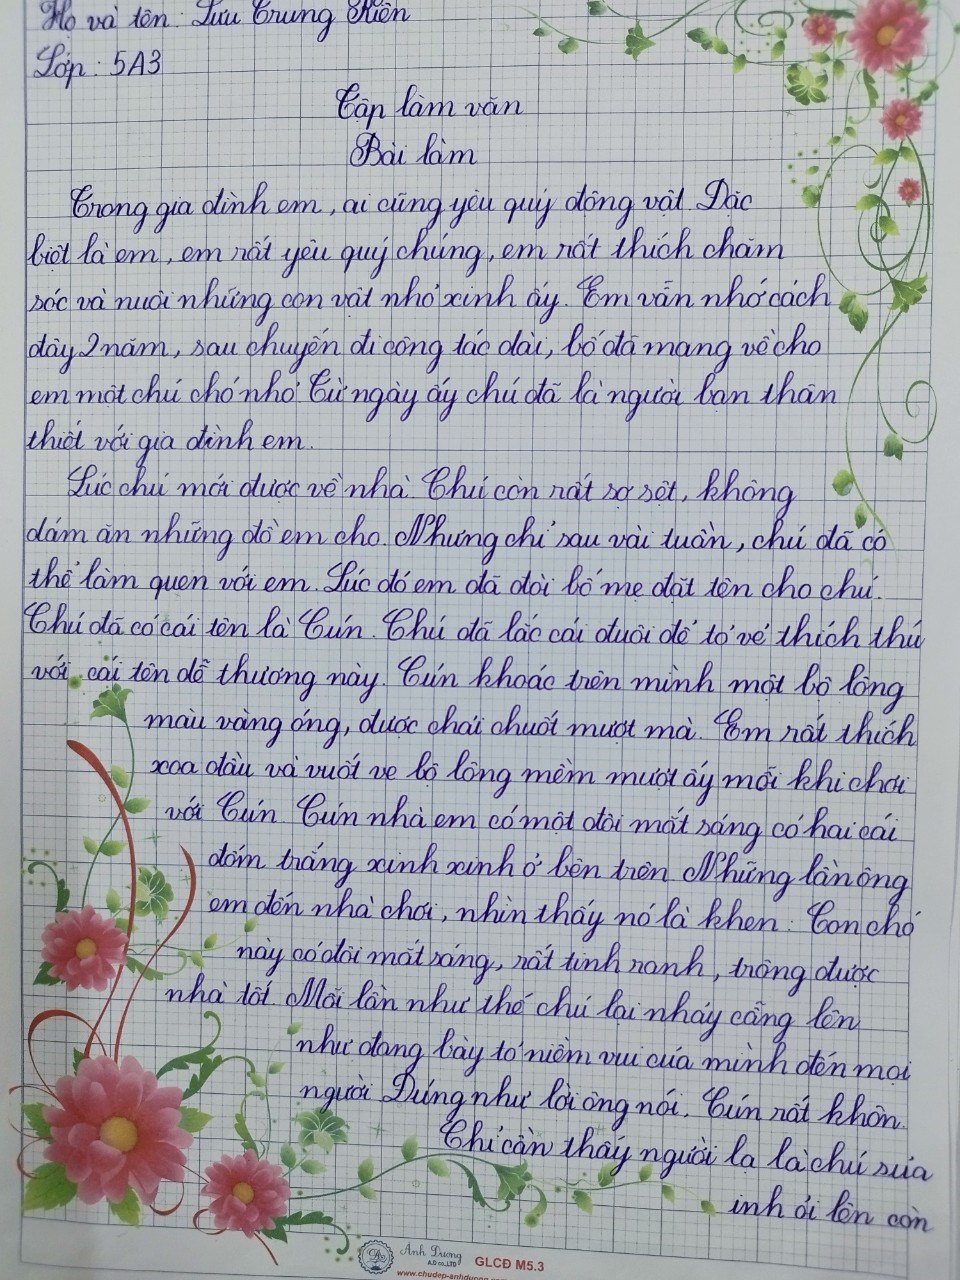 Họ và tên: Lưu Trung Kiên
Lớp: 5A3
Tập làm văn
Bài làm
Trong gia đình em, ai cũng yêu quý động vật. Đặc
biệt là em, em rất yêu quý chúng, em rất thích chăm
sóc và nuôi những con vật nhỏ xinh ấy. Em vẫn nhớ cách
đây 2 năm, sau chuyến đi công tác dài, bố đã mang về cho
em một chú chó nhỏ. Từ ngày ấy chú đã là người bạn thân
thiết với gia đình em.
Lúc chú mới được về nhà. Chú còn rất sợ sệt, không
dám ăn những đồ em cho. Nhưng chỉ sau vài tuần, chú đã có
thể làm quen với em. Lúc đó em đã đòi bố mẹ đặt tên cho chú.
Chú đã có cái tên là Cún. Chú đã lắc cái đuôi để tỏ vẻ thích thú
với cái tên dễ thương này. Cún khoác trên mình một bộ lông
màu vàng óng, được chải chuốt mượt mà. Em rất thích
xoa đầu và vuốt ve bộ lông mềm mượt ấy mỗi khi chơi
với Cún. Cún nhà em có một đôi mắt sáng có hai cái
đốm trắng xinh xinh ở bên trên. Những lần ông
em đến nhà chơi, nhìn thấy nó là khen: Con chó
này có đôi mắt sáng, rất tinh ranh, trông được
nhà tốt. Mỗi lần như thế chú lại nhảy cẫng lên
như đang bày tỏ niềm vui của mình đến mọi
người. Đúng như lời ông nói, Cún rất khôn.
Chỉ cần thấy người lạ là chú sủa
inh ỏi lên còn
Ánh Dương
A.D co.,LTD
GLCĐ M5.3